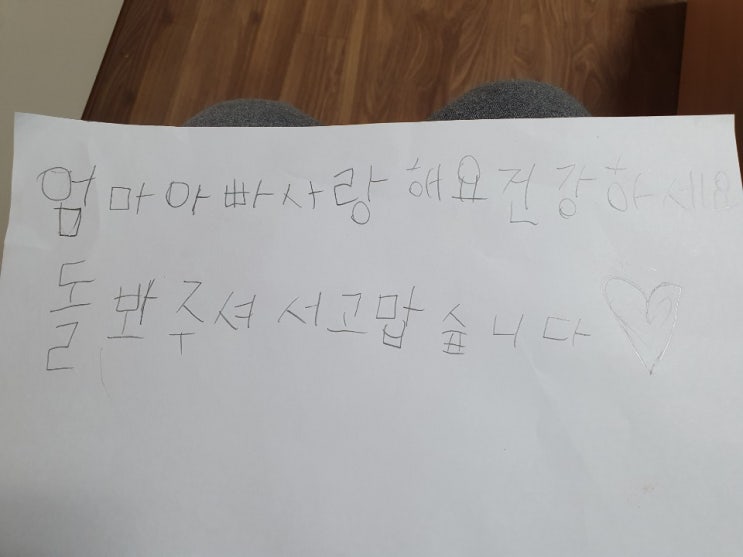 엄마아빠사랑해요건강하세요
돌봐주셔서고맙숩니다